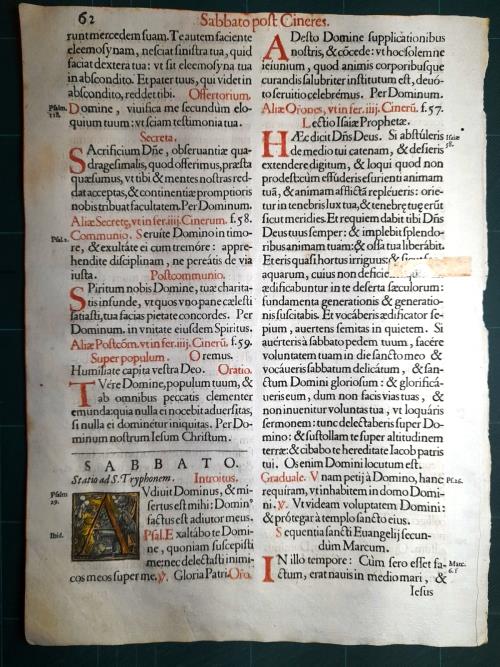 62
Sabbato post Cineres.
runt mercedem suam. Te autem faciente
eleemosynam, nesciat sinistra tua, quid
faciat dextera tua: vt sit eleemosyna tua
in abscondito. Et pater tuus, qui videt in
abscondito, reddet tibi. Offertorium.
Psalm. 118.
Domine, viuifica me secundùm elo-
quium tuum: vt sciam testimonia tua.
Secreta.
SAcrificium Dñe, obseruantiæ qua-
dragesimalis, quod offerimus, præsta
quæsumus, vt tibi & mentes nostras red-
dat acceptas, & continentiæ promptioris
nobis tribuat facultatem. Per Dominum.
Aliæ Secretę, vt in fer. iiij. Cinerum. f. 58.
Psal. 2.
Communio. Seruite Domino in timo-
re, & exultáte ei cum tremóre: appre-
hendite disciplinam, ne pereátis de via
iusta. Postcommunio.
SPiritum nobis Domine, tuæ charita-
tis infunde, vt quos vno pane cælesti
satiasti, tua facias pietate concordes. Per
Dominum. in vnitate eiusdem Spiritus.
Aliæ Postcōm. vt in fer. iiij. Cineru. f. 59.
Super populum. Oremus.
Humiliate capita vestra Deo. Oratio.
TVére Domine, populum tuum, &
ab omnibus peccatis clementer
emunda: quia nulla ei nocebit aduersitas,
si nulla ei dominetur iniquitas. Per Do-
minum nostrum Iesum Christum.
SABBATO.
Statio ad S. Tryphonem. Introitus.
Psalm 29.
AVdiuit Dominus, & mi-
sertus est mihi: Domin⁹
factus est adiutor meus.
Ibid.
Psal. Exaltábo te Domi-
ne, quoniam suscepisti
me: nec delectasti inimi-
cos meos super me. ℣. Gloria Patri. Oro.
ADesto Domine supplicationibus
nostris, & cōcede: vt hoc solemne
ieiunium, quod animis corporibusque
curandis salubriter institutum est, deuó-
to seruitio celebrémus. Per Dominum.
Aliæ Orōnes, vt in fer. iiij. Cinerū. f. 57.
Lectio Isaiæ Prophetæ.
HÆc dicit Dñs Deus. Si abstúleris
Isaiæ 58.
de medio tui catenam, & desieris
extendere digitum, & loqui quod non
prodest: cùm effúderis esurienti animam
tuā, & animam afflictā repléueris: orie-
tur in tenebris lux tua, & tenebrę tuę erūt
sicut meridies. Et requiem dabit tibi Dñs
Deus tuus semper: & implebit splendo-
ribus animam tuam: & ossa tua liberábit.
Et eris quasi hortus irriguus: &
aquarum, cuius non deficie
ædificabuntur in te deserta sæculorum:
fundamenta generationis & generatio-
nis suscitabis. Et vocáberis ædificator se-
pium, auertens semitas in quietem. Si
auérteris à sabbato pedem tuum, facére
voluntatem tuam in die sancto meo &
vocáueris sabbatum delicátum, & san-
ctum Domini gloriosum: & glorificá-
ueris eum, dum non facis vias tuas, &
non inuenitur voluntas tua, vt loquáris
sermonem: tunc delectaberis super Do-
mino: & sustollam te super altitudinem
terræ: & cibabo te hereditate Iacob patris
tui. Os enim Domini locutum est.
Graduale. Vnam petij à Domino, hanc
Ps. 26.
requiram, vt inhabitem in domo Domi-
ni. ℣. Vt videam voluptatem Domini:
& prótegar à templo sancto eius.
Sequentia sancti Euangelij secun-
dùm Marcum.
IN illo tempore: Cùm sero esset fa-
Marc. 6. f
ctum, erat nauis in medio mari, &
Iesus